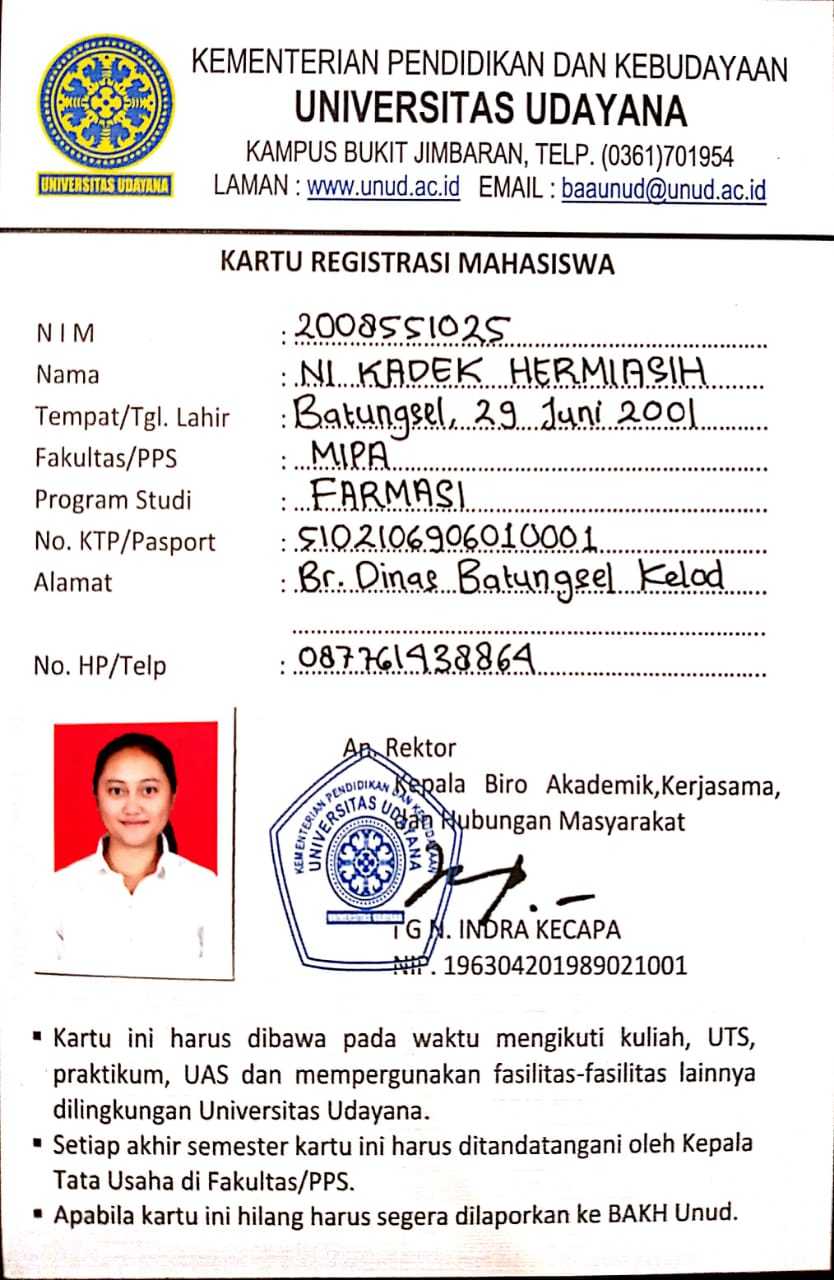 KEMENTERIAN PENDIDIKAN DAN KEBUDAYAAN
UNIVERSITAS UDAYANA
KAMPUS BUKIT JIMBARAN, TELP. (0361)701954
LAMAN : www.unud.ac.id EMAIL : baaunud@unud.ac.id
UNIVERSITAS UDAYANA
KARTU REGISTRASI MAHASISWA
N I M : 2008551025
Nama : NI KADEK HERMIASIH
Tempat/Tgl. Lahir : Batungsel, 29 Juni 2001
Fakultas/PPS : MIPA
Program Studi : FARMASI
No. KTP/Pasport : 5102106906010001
Alamat : Br. Dinas Batungsel Kelod
No. HP/Telp : 087761438864
An. Rektor
Kepala Biro Akademik,Kerjasama,
dan Hubungan Masyarakat
KEMENTERIAN PENDIDIKAN DAN KEBUDAYAAN
UNIVERSITAS UDAYANA
UNIVERSITAS UDAYANA
I G N. INDRA KECAPA
NIP. 196304201989021001
▪ Kartu ini harus dibawa pada waktu mengikuti kuliah, UTS,
praktikum, UAS dan mempergunakan fasilitas-fasilitas lainnya
dilingkungan Universitas Udayana.
▪ Setiap akhir semester kartu ini harus ditandatangani oleh Kepala
Tata Usaha di Fakultas/PPS.
▪ Apabila kartu ini hilang harus segera dilaporkan ke BAKH Unud.